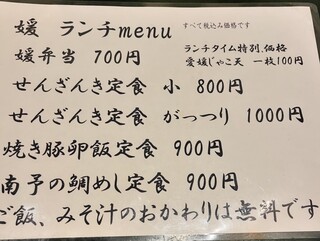 媛 ランチmenu すべて税込み価格です
媛弁当 700円
ランチタイム特別価格
愛媛じゃこ天 一枚100円
せんざんき定食 小 800円
せんざんき定食 がっつり 1000円
焼き豚卵飯定食 900円
南予の鯛めし定食 900円
ご飯、みそ汁のおかわりは無料です